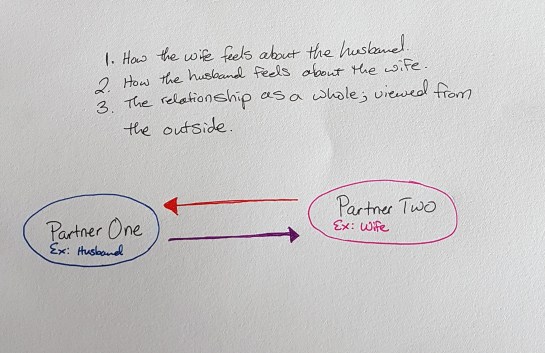 1. How the wife feels about the husband.
2. How the husband feels about the wife.
3. The relationship as a whole; viewed from
the outside.
Partner One
Ex: Husband
Partner Two
Ex: Wife